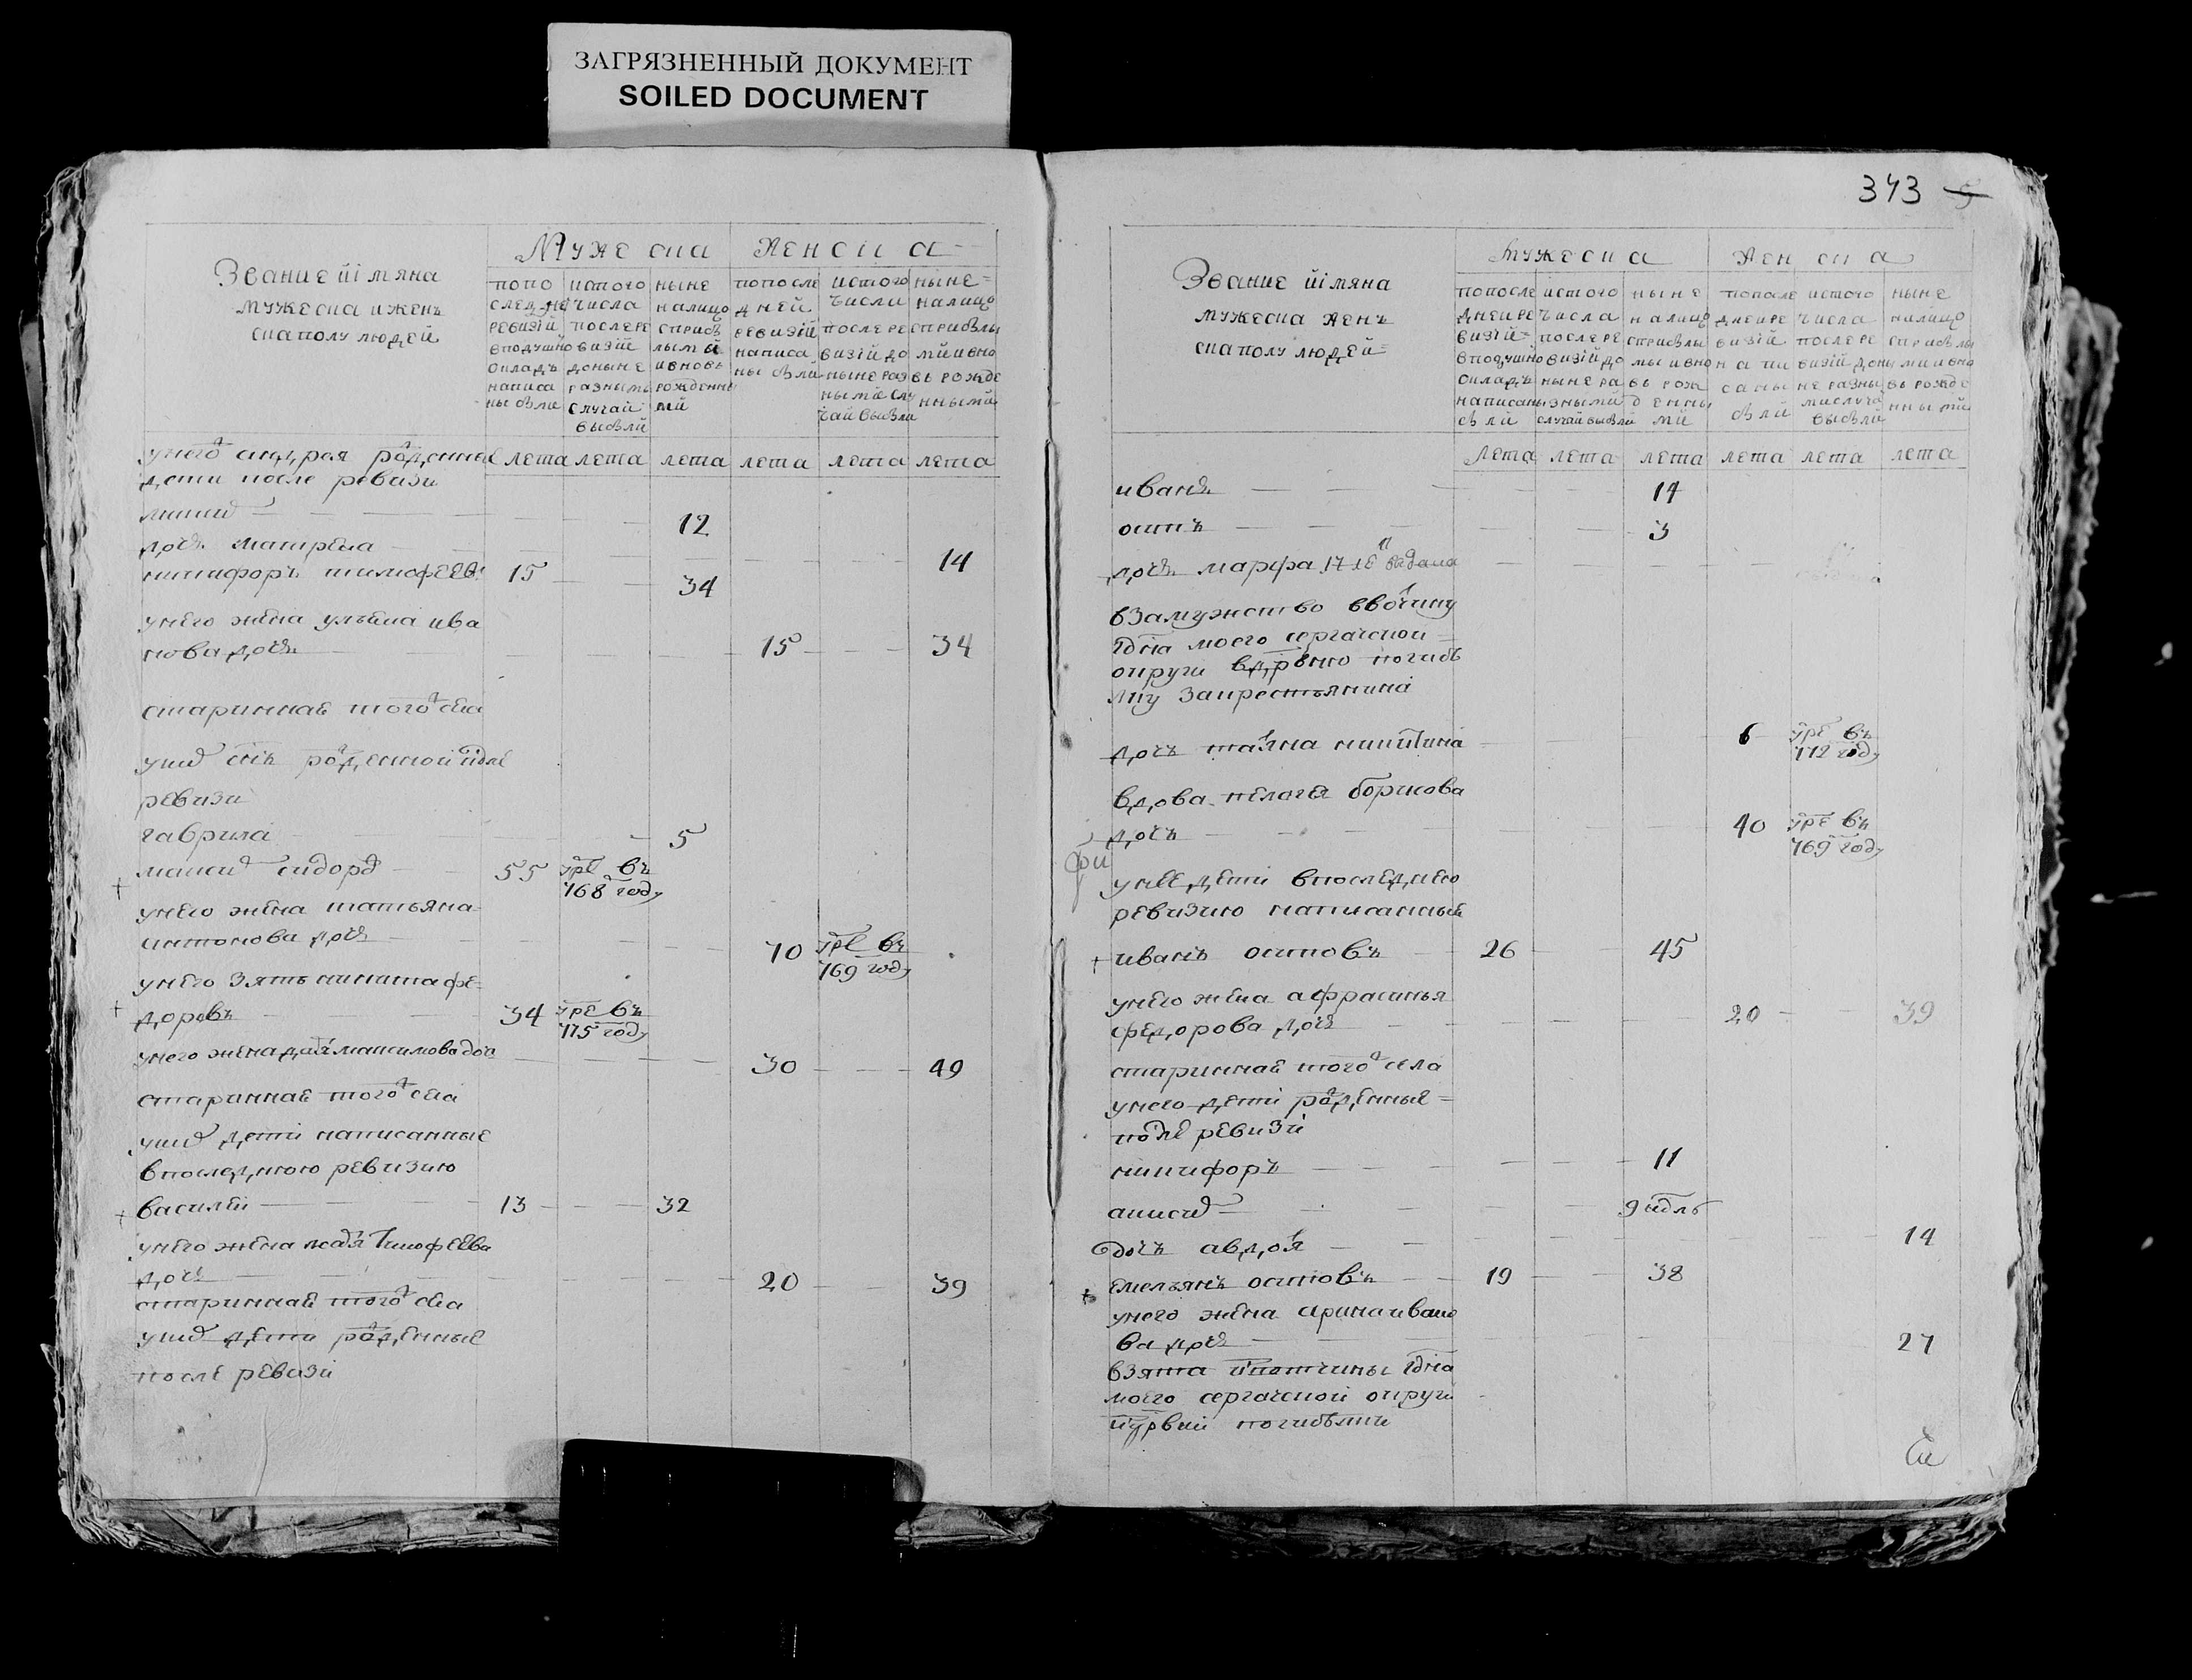 ЗАГРЯЗНЕННЫЙ ДОКУМЕНТ
SOILED DOCUMENT
Звание иімяна
мужеска ижень
скаполу людей
Мужеска
Женска
попо
следней
ревизій
вподушно
окладъ
написа
ны были
истого
числа
послере
визій
доныне
разнымъ
случай
выбыли
ныне
налицо
сприбы
лыми
ивновь
рожденны
ми
попосле
дней
ревизій
написа
ны были
истого
числа
послере
визій до
ныне раз
ными слу
чай выбыли
ныне
налицо
сприбылы
ми ивно
вь рожде
нными
лета лета лета лета лета лета
унего
дети после ревизи
12
дочь матрена
14
никифоръ тимофеевъ 15 34
унего жена ульяна ива
нова дочь 15 34
стариннае того села
уних снъ рожденной после
ревизи
гаврила 5
максим сидоров 55 умре въ
768 году
унего жена татьяна
антонова дочь 70 умре въ
769 году
унего зять никита фе
доровъ 34 умре въ
775 году
унего жена дарья максимова дочь 30 49
стариннае того села
уних дети написанные
впоследнюю ревизию
василей 13 32
унего жена тимофеева
дочь 20 39
стариннае того села
уних дети рожденные
после ревизи
343
Звание иімяна
мужеска жень
скаполу людей
мужеска
женска
попосле
дней ре
визій
вподушно
окладъ
написаны
были
истого
числа
послере
визій до
ныне ра
зными
случай выбыли
ныне
налицо
сприбылы
ми ивно
вь рож
денны
ми
попосле
дней ре
визій
напи
саны
были
истого
числа
после ре
визій доны
не разны
ми случа
выбыли
ныне
налицо
сприбылы
ми ивно
вь рожде
нными
лета лета лета лета лета лета
иванъ 14
осипъ 3
дочь марфа 17 выдана
взамужство ввотчину
гдна моего сергачской
округи вдрвню погиб
лку закрестьянина
дочь татьяна никитина 6 умре въ
772 году
вдова пелагея борисова
дочь 40 умре въ
769 году
унее дети впоследнею
ревизию написанные
иванъ осиповъ 26 45
унего жена афрасинья
федорова дочь 20 39
стариннае того села
унего дети рожденные
после ревизи
никифоръ 11
анисим 9 ндль
дочь авдотя 14
емельянъ осиповъ 19 38
унего жена арина ивано
ва дочь 27
взята извотчины гдна
моего сергачской округи
издрвни погибелки